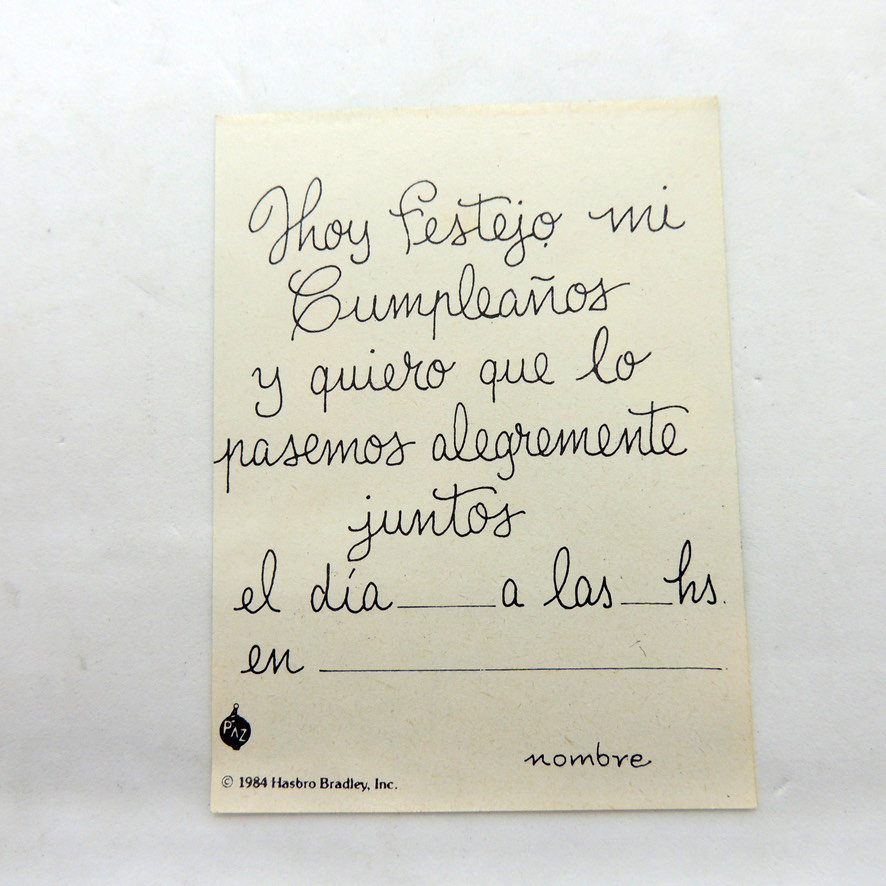 Hoy festejo mi
Cumpleaños
y quiero que lo
pasemos alegremente
juntos
el día____a las__hs.
en ________________
PAZ
nombre
© 1984 Hasbro Bradley, Inc.